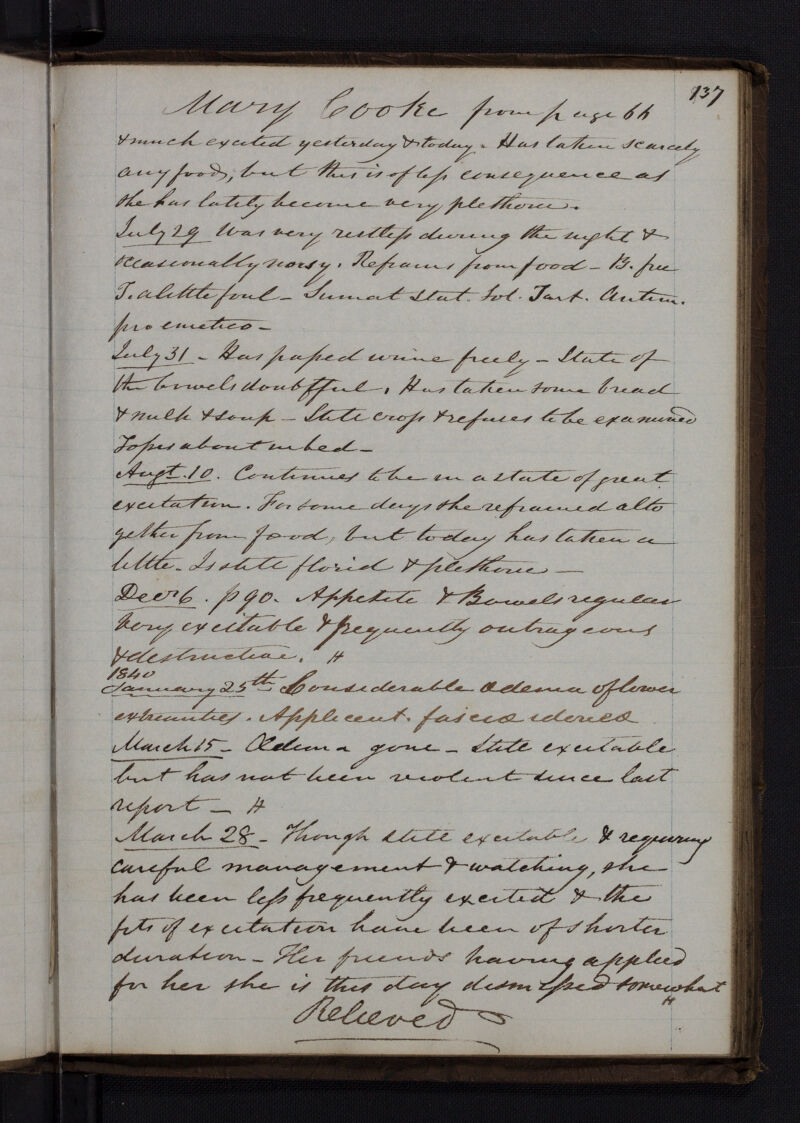 137
Mary Cooke from page 66
& much excited yesterday & today. Has taken scarcely
any food, but this is of less consequence as
she has lately become very plethoric.
July 29 Was very restless during the night &
occasionally noisy. Refrains from food - B. free
T. a little foul - Sumat stat. Sol. Tart. Antim.
pro emetico -
July 31 - Has passed urine freely - State of
the bowels doubtful. Has taken some bread
& milk & soup - Still cross & refuses to be examined
Tosses about in bed -
Augt. 10. Continues to be in a state of great
excitation. For some days she refrained alto
gether from food, but today has taken a
little. Is still florid & plethoric -
Decr 6. P 90. Appetite & Bowels regular
Very excitable & frequently outrageous
& destructive. H
1840
January 25th Considerable Œdema of lower
extremities. Applicent. fasciæ
March 15 - Œdema gone - Still excitable
but has not been violent since last
report - H
March 28 - Though still excitable & requiring
careful management & watching, she
has been less frequently excited & the
fits of excitation have been of shorter
duration - Her friends having applied
for her she is this day dismissed somewhat
H
Relieved